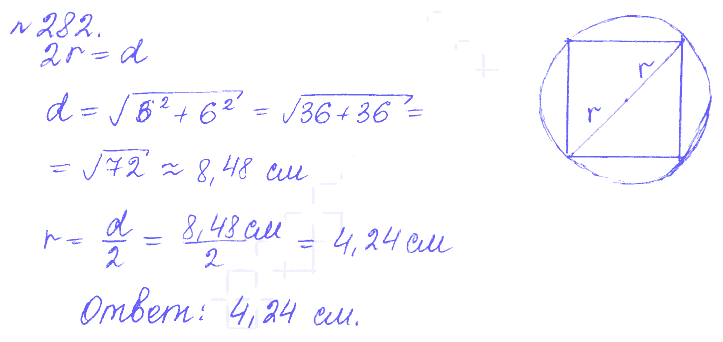 № 282.
2r = d
d = √(6² + 6²) = √(36 + 36) =
= √72 ≈ 8,48 см
r = d/2 = 8,48 см/2 = 4,24 см
Ответ: 4,24 см.
r
r